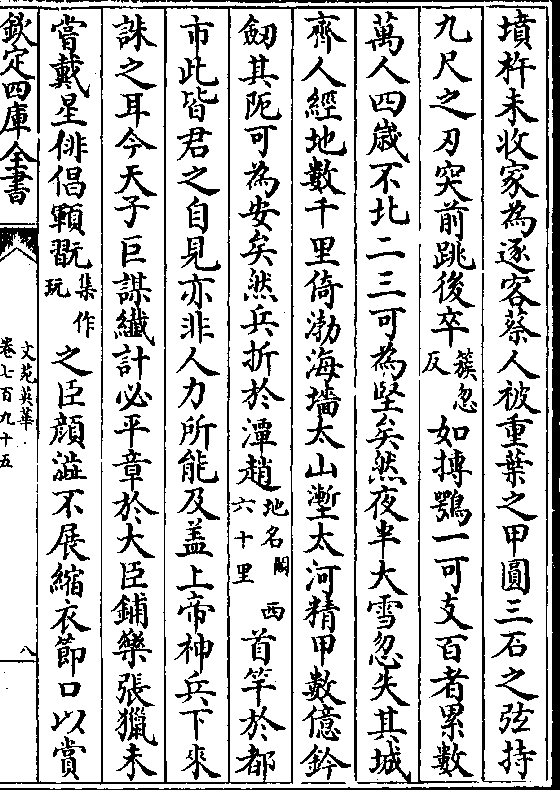 墳杵未收家為逐客蔡人被重葉之甲圓三石之弦持
九尺之刃突前跳後卒簇忽反如搏鶚一可支百者累數
萬人四歲不北二三可為堅矣然夜半大雪忽失其城
齊人經地數千里倚渤海墻太山塹太河精甲數億鈐
劒其阨可為安矣然兵折於潭趙地名闕西六十里首竿於都
市此皆君之自見亦非人力所能及盖上帝神兵下來
誅之耳今天子巨謀纎計必平章於大臣鋪樂張獵未
嘗戴星俳倡顐翫集作玩之臣顔澁不展縮衣節口以賞
欽定四庫全書
文苑英華
卷七百九十五
八